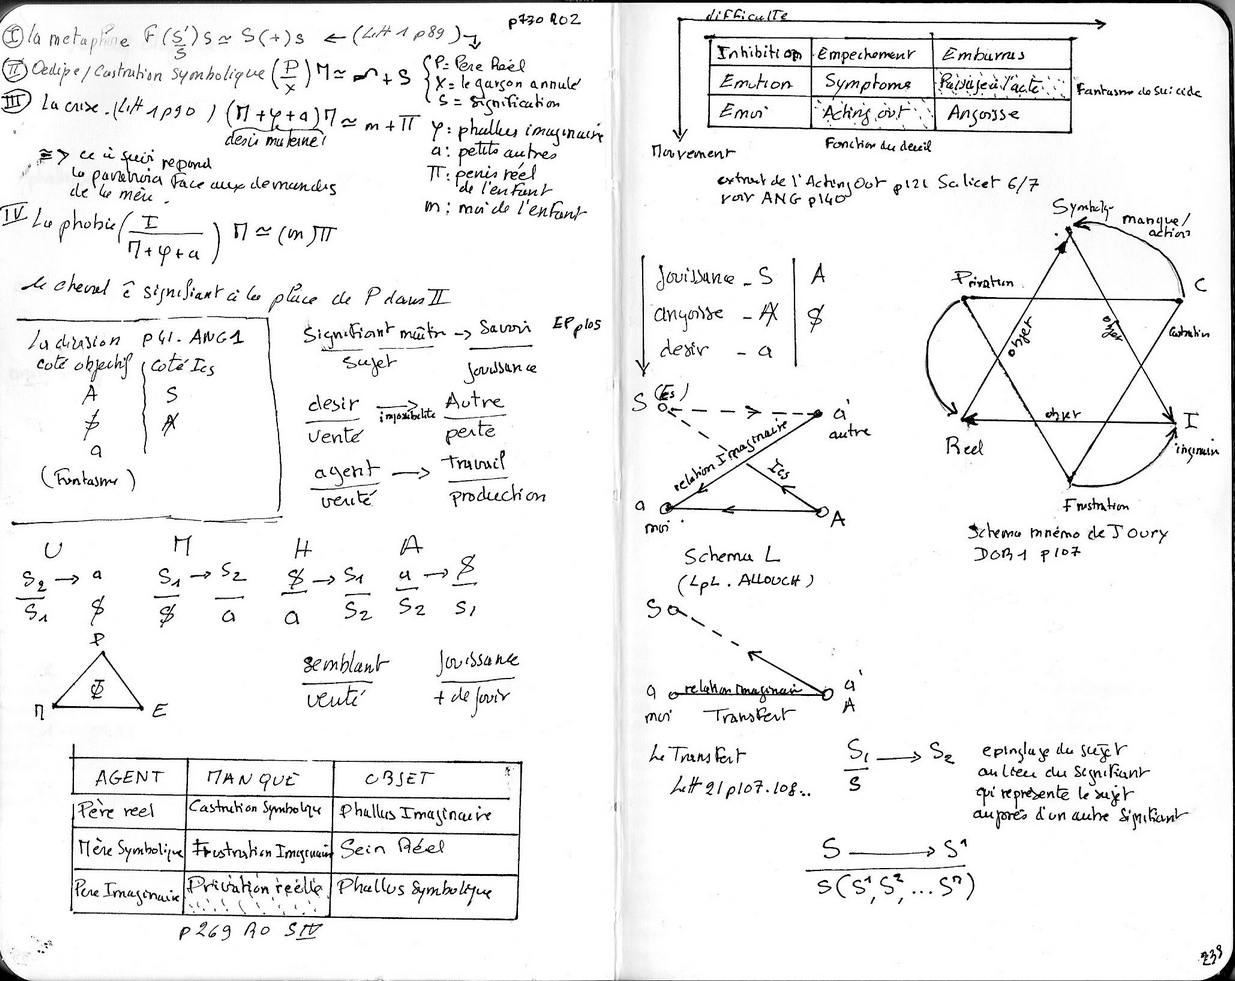 p730 RO2
I la metaphore F(S'/S)S ≃ S(+)s ← (LitH 1 p89)
II Oedipe/Castration Symbolique (P/x) M ≃ + S
P = Père Réel
X = le garçon annulé
S = signification
III La crise. (LitH 1 p90) (M+φ+a) M ≃ m + Π
desir maternel
φ: phallus imaginaire
a: petits autres
Π: penis réel
de l'enfant
m: moi de l'enfant
≅> ce à quoi repond
la paranoia face aux demandes
de la mère.
IV La phobie (I/M+φ+a) M ≃ (m)Π
le cheval ê signifiant à la place de P dans II
La division p41. ANG1
coté objectif coté Ics
A S
$ Ⱥ
a
(Fantasme)
Signifiant maître → Savoir EP p105
Sujet jouissance
desir → Autre
impossibilité
verité perte
agent → travail
verité production
U M H A
S2 → a S1 → S2 $ → S1 a → $
S1 $ $ a a S2 S2 S1
P
Φ
M E
semblant Jouissance
verité + de jouir
AGENT MANQUE OBJET
Père reel Castration Symbolique Phallus Imaginaire
Mère Symbolique Frustration Imaginaire Sein Réel
Pere Imaginaire Privation réelle Phallus Symbolique
p269 RO SIV
difficulté
Inhibition Empechement Embarras
Emotion Symptome Passage à l'acte Fantasme de Suicide
Emoi Acting out Angoisse
Mouvement Fonction du deuil
extrait de l'Acting Out p121 Scilicet 6/7
voir ANG p140
Jouissance - S A
angoisse - Ⱥ $
desir - a
S (Es) a'
autre
relation Imaginaire
Ics
a A
moi
Schema L
(LpL. ALLOUCH)
Symboliq manque/
action
Privation C
Castration
objet objet
objet
Reel I
imaginair
Frustration
Schema mnémo de J Oury
DOR1 p107
S
a relation Imaginair a'
moi Transfert A
Le Transfert
LitH 21 p107.108...
S1 → S2
S
epinglage du sujet
au lieu du signifiant
qui représente le sujet
auprès d'un autre Signifiant
S → S1
S(S1, S2, ... Sn)